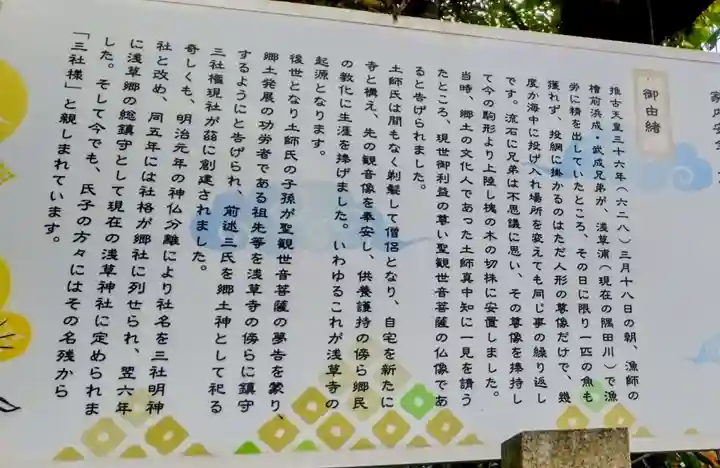 家内安全
御由緒
推古天皇三十六年(六二八)三月十八日の朝、漁師の
檜前浜成・武成兄弟が、浅草浦(現在の隅田川)で漁
労に精を出していたところ、その日に限り一匹の魚も
獲れず、投網に掛かるのはただ人形の尊像だけで、幾
度か海中に投げ入れ場所を変えても同じ事の繰り返し
です。流石に兄弟は不思議に思い、その尊像を捧持し
て今の駒形より上陸し槐の木の切株に安置しました。
当時、郷土の文化人であった土師真中知に一見を請う
たところ、現世御利益の尊い聖観世音菩薩の仏像であ
ると告げられました。
土師氏は間もなく剃髪して僧侶となり、自宅を新たに
寺と構え、先の観音像を奉安し、供養護持の傍ら郷民
の教化に生涯を捧げました。いわゆるこれが浅草寺の
起源となります。
後世となり土師氏の子孫が聖観世音菩薩の夢告を蒙り、
郷土発展の功労者である祖先等を浅草寺の傍らに鎮守
するようにと告げられ、前述三氏を郷土神として祀る
三社権現社が茲に創建されました。
奇しくも、明治元年の神仏分離により社名を三社明神
社と改め、同五年には社格が郷社に列せられ、翌六年
に浅草郷の総鎮守として現在の浅草神社に定められま
した。そして今でも、氏子の方々にはその名残から
「三社様」と親しまれています。